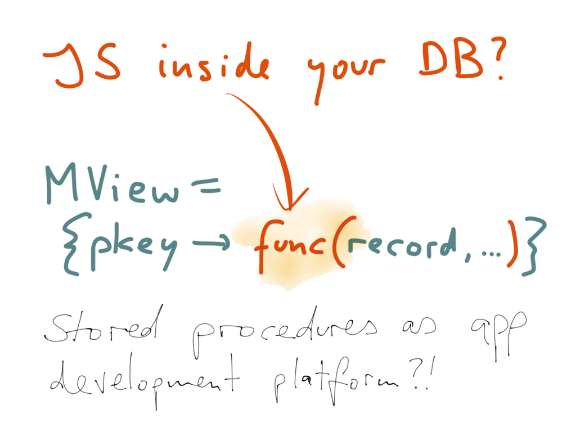 JS inside your DB?
MView =
{pkey → func(record, ...)}
Stored procedures as app
development platform?!